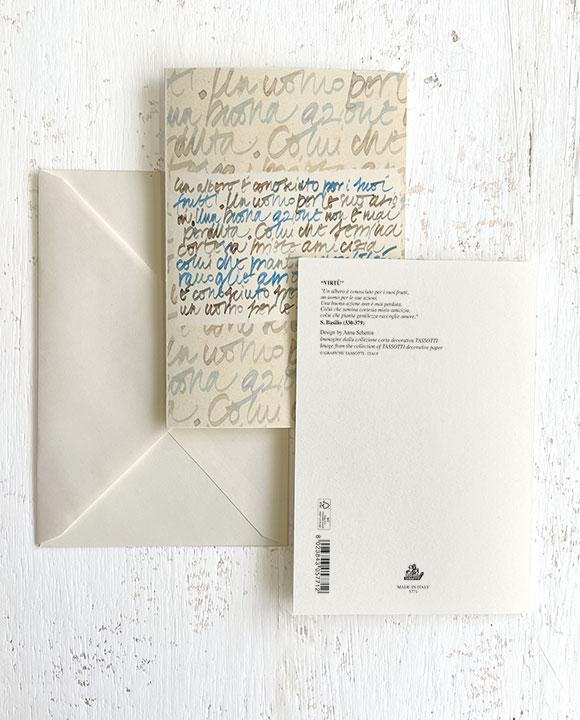 ti. Un uomo per le
una buona azione
perduta. Colui che
Un albero è conosciuto per i suoi
frutti. Un uomo per le sue azio
ni. Una buona azione non è mai
perduta. Colui che semina
cortesia miete amicizia
colui che
raccoglie amo
è conosciuto
un uomo per le
un uomo
buona azio
a. Colui
"VIRTÙ"
"Un albero è conosciuto per i suoi frutti,
un uomo per le sue azioni.
Una buona azione non è mai perduta.
Colui che semina cortesia miete amicizia,
colui che pianta gentilezza raccoglie amore."
S. Basilio (330-379)
Design by Anna Schettin
Immagine dalla collezione carta decorativa TASSOTTI
Image from the collection of TASSOTTI decorative paper
© GRAFICHE TASSOTTI - ITALY
8023843057712
TASSOTTI
MADE IN ITALY
5771